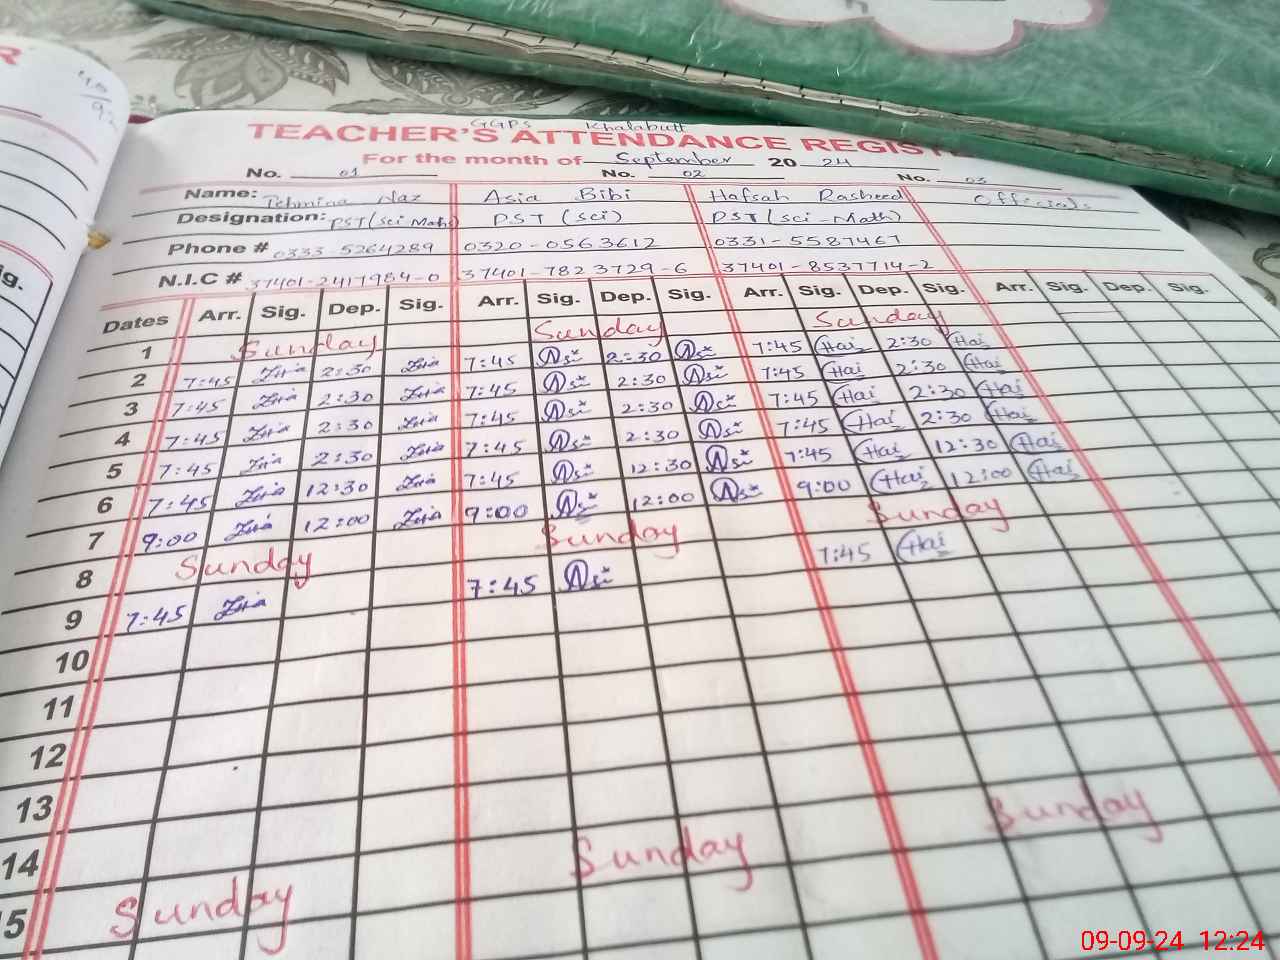 R
GGPS Khalabutt
TEACHER'S ATTENDANCE REGISTE
For the month of September 20 24
No. 01 No. 02 No. 03
Name: Tehmina Naz Asia Bibi Hafsah Rasheed Officials
Designation: PST (Sci Maths) PST (Sci) PST (Sci-Math)
Phone # 0333-5264289 0320-0563612 0331-5587467
N.I.C # 37401-2417984-0 37401-7823729-6 37401-8537714-2
ig. Dates Arr. Sig. Dep. Sig. Arr. Sig. Dep. Sig. Arr. Sig. Dep. Sig. Arr. Sig. Dep. Sig.
1 Sunday Sunday Sunday
2 7:45 2:30 7:45 2:30 7:45 Hai 2:30 Hai
3 7:45 2:30 7:45 2:30 7:45 Hai 2:30 Hai
4 7:45 2:30 7:45 2:30 7:45 Hai 2:30 Hai
5 7:45 2:30 7:45 2:30 7:45 Hai 2:30 Hai
6 7:45 12:30 7:45 12:30 7:45 Hai 12:30 Hai
7 9:00 12:00 9:00 12:00 9:00 Hai 12:00 Hai
8 Sunday Sunday Sunday
9 7:45 7:45 7:45 Hai
10
11
12
13
14
5 Sunday Sunday Sunday
09-09-24 12:24